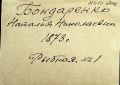 Бондаренко
Наталия Николаевна
1873 г.
Рыбная, №1